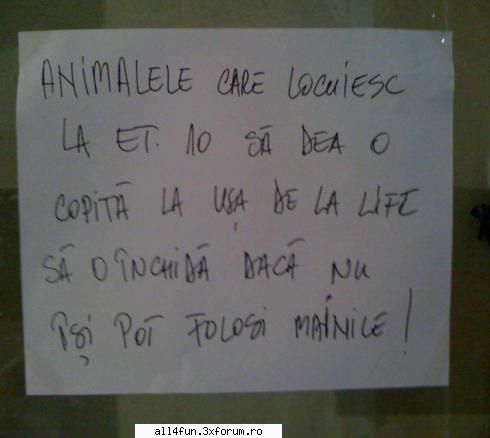 ANIMALELE CARE LOCUIESC
LA ET. 10 SĂ DEA O
COPITĂ LA UȘA DE LA LIFT
SĂ O ÎNCHIDĂ DACĂ NU
ÎȘI POT FOLOSI MAINILE!
all4fun.3xforum.ro